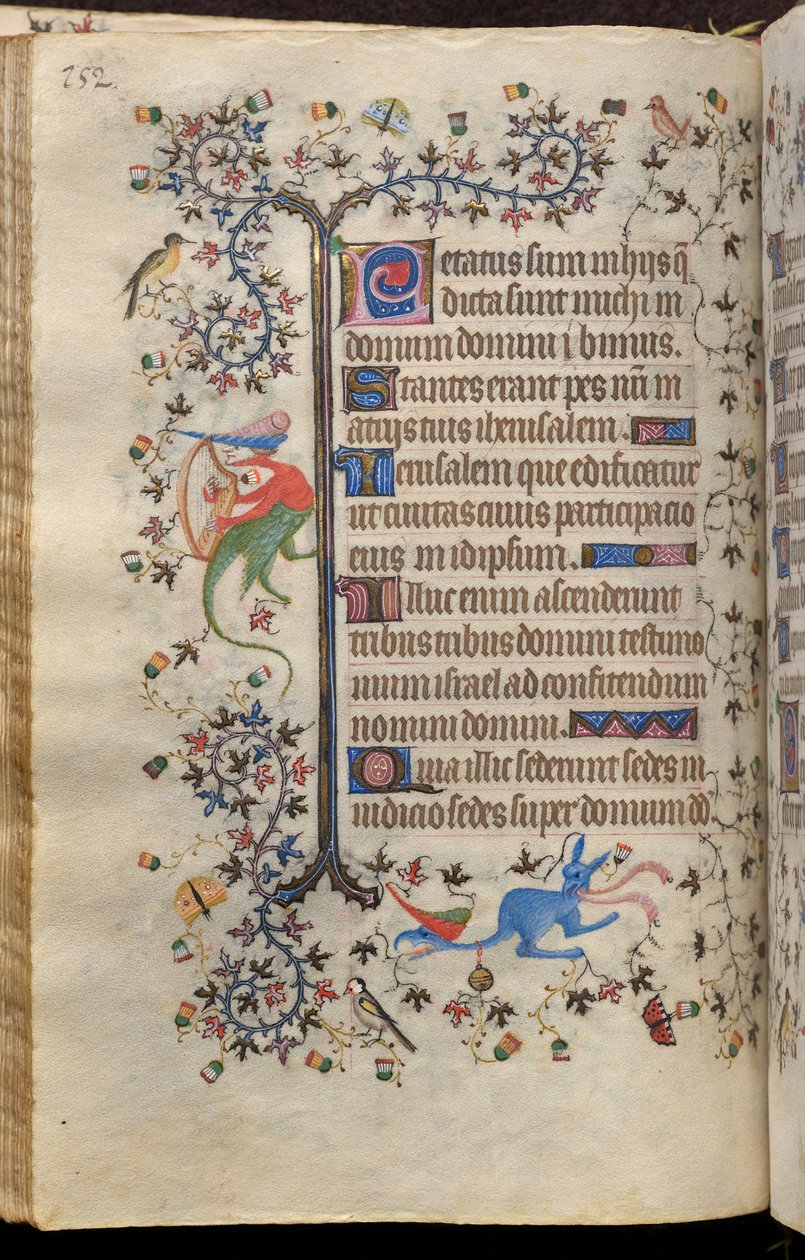 252.
Letatus sum in hijs q̄
dicta sunt michi in
domum domini ibimus.
Stantes erant pedes nr̄i in
atrijs tuis iherusalem.
Ierusalem que edificatur
ut ciuitas cuius participacio
eius in idipsum.
Illuc enim ascenderunt
tribus tribus domini testimo
nium israel ad confitendum
nomini domini.
Quia illic sederunt sedes in
iudicio sedes super domum dd̄.